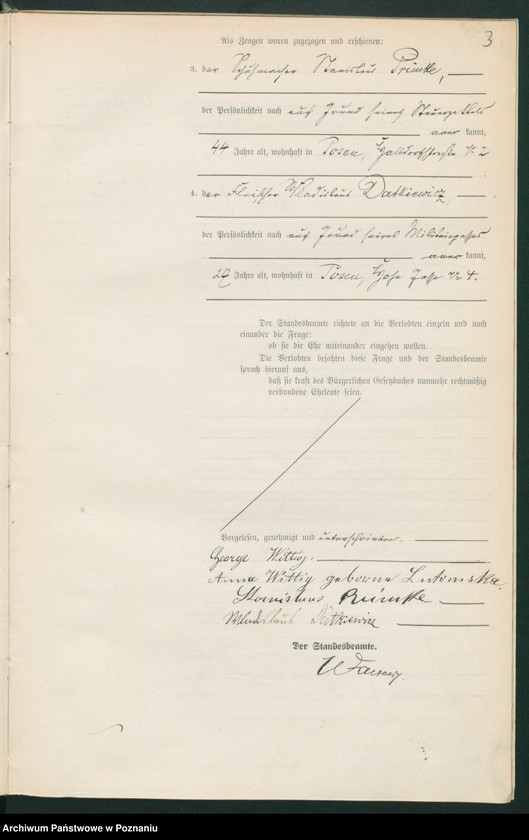 3
Als Zeugen waren zugezogen und erschienen:
3. der Schuhmacher Stanislaus Primke,
der Persönlichkeit nach auf Grund seines Steuerzettels
aner kannt,
44 Jahre alt, wohnhaft in Posen,
4. der Fleischer Wladislaus Datkiewicz,
der Persönlichkeit nach auf Grund seines Militairpasses
aner kannt,
Jahre alt, wohnhaft in Posen, Hohe Gasse 4.
Der Standesbeamte richtete an die Verlobten einzeln und nach
einander die Frage:
ob sie die Ehe miteinander eingehen wollen.
Die Verlobten bejahten diese Frage und der Standesbeamte
sprach hierauf aus,
daß sie kraft des Bürgerlichen Gesetzbuches nunmehr rechtmäßig
verbundene Eheleute seien.
Vorgelesen, genehmigt und unterschrieben.
George Wittig.
Anna Wittig geborne Lutomska.
Stanislaus Primke
Datkiewicz
Der Standesbeamte.
Archiwum Państwowe w Poznaniu